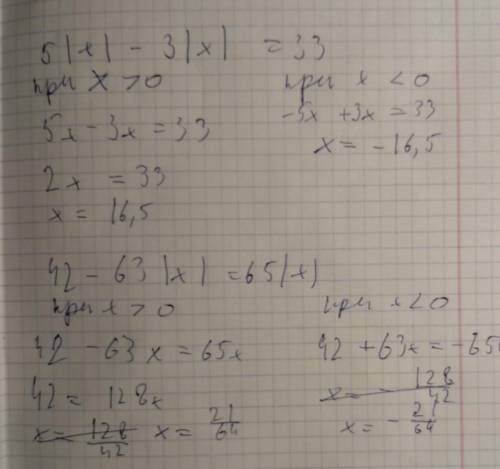 5|x| - 3|x| = 33
при x > 0
при x < 0
5x - 3x = 33
-5x + 3x = 33
2x = 33
x = -16,5
x = 16,5
42 - 63|x| = 65|x|
при x > 0
при x < 0
42 - 63x = 65x
42 + 63x = -65x
42 = 128x
x = - 128/42
x = 128/42 x = 21/64
x = - 21/64